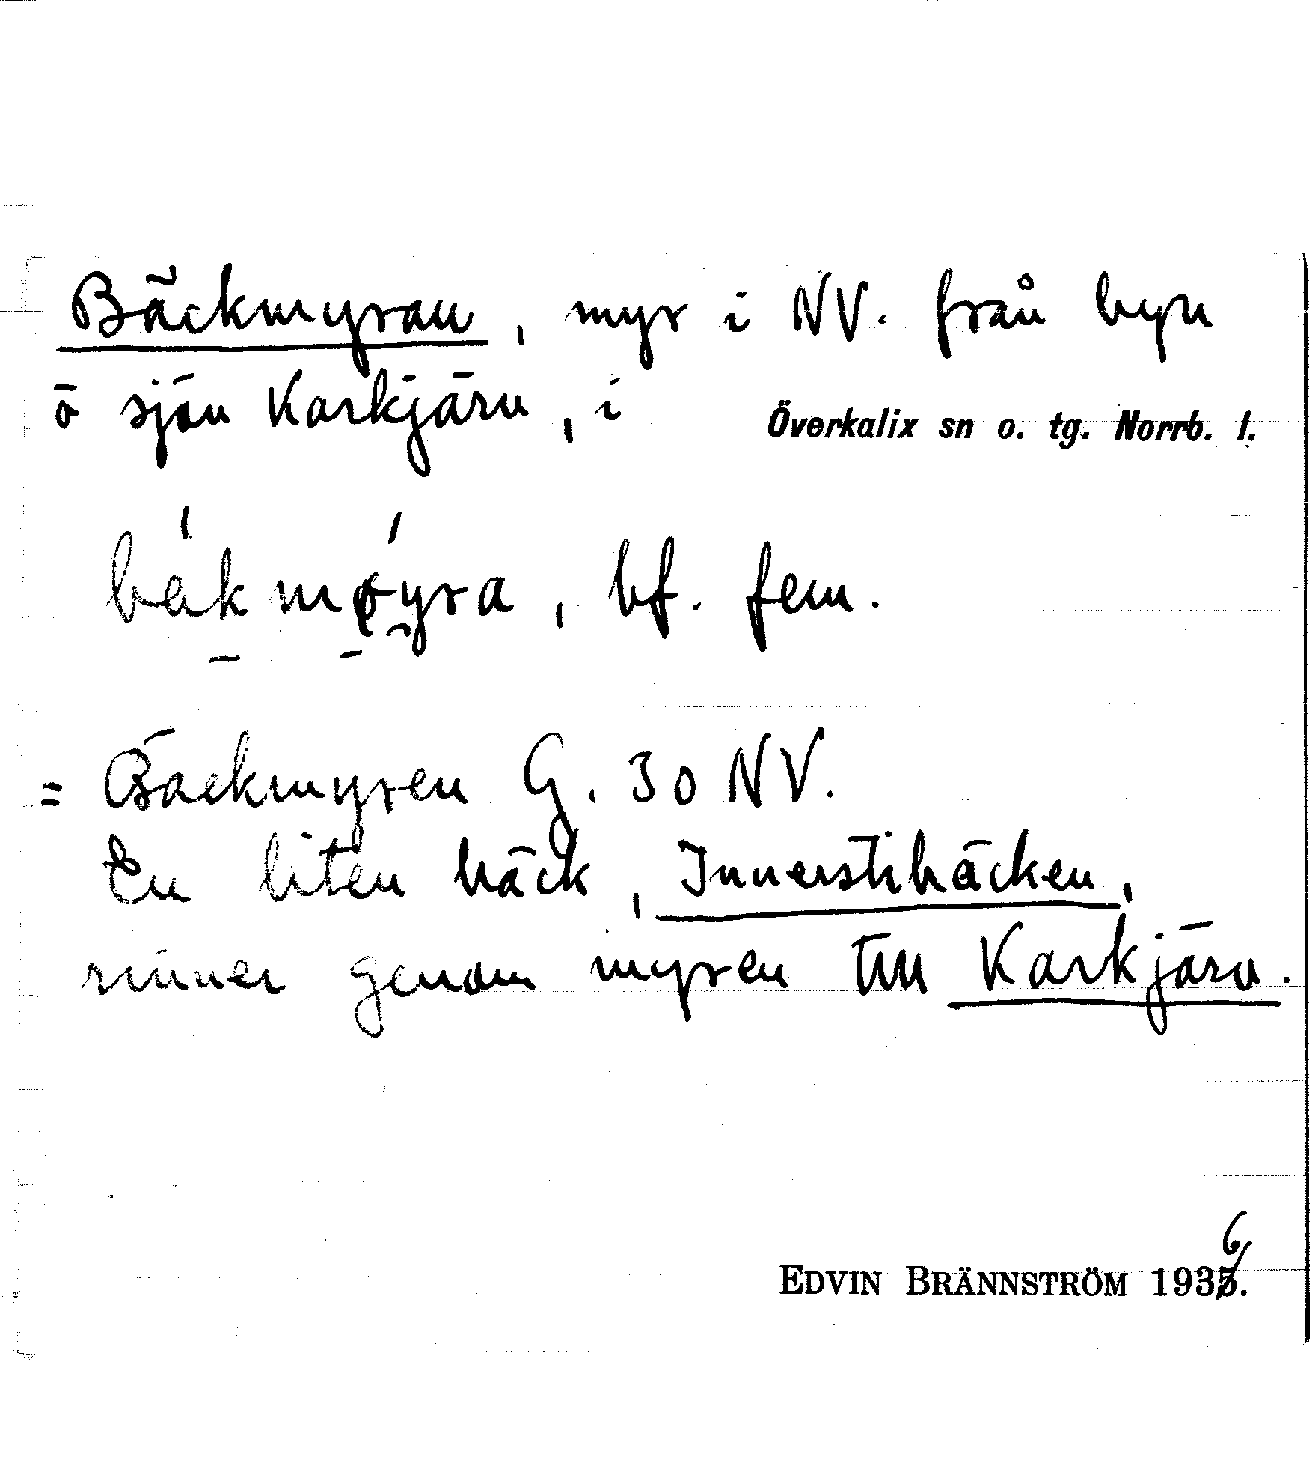 Bäckmyran, myr i NV. från byn
ö sjön Karkjärn, i Överkalix sn o. tg. Norrb. l.
bäkmøyra, bf. fem.
= Bäckmyren G. 30 NV.
En liten bäck, Innerstibäcken,
rinner genom myren till Karkjärn.
EDVIN BRÄNNSTRÖM 1936.